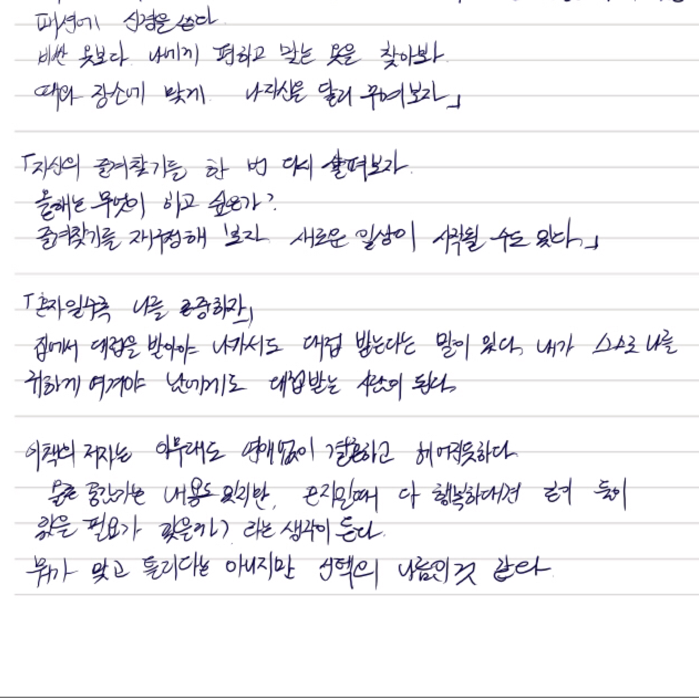 패션에 신경을 쓴다
비싼 옷보다 나에게 편하고 맞는 옷을 찾아보자
때와 장소에 맞게 나 자신을 달리 꾸며보자」
「자신의 즐겨찾기를 한 번 다시 살펴보자
올해는 무엇이 하고 싶은가?
즐겨찾기를 재구정해 보자 새로운 일상이 시작될 수도 있다.」
「혼자일수록 나를 존중하라」
집에서 대접을 받아야 나가서도 대접 받는다는 말이 있다. 내가 스스로 나를
귀하게 여겨야 남에게도 대접받는 사람이 된다.
이책의 저자는 아무래도 연애없이 결혼하고 헤어진듯하다
물론 공감가는 내용도 있지만, 혼자일때 다 행복하다면 둘이
있을 필요가 있을까? 라는 생각이 든다.
뭐가 맞고 틀리다는 아니지만 선택의 나름인것 같다